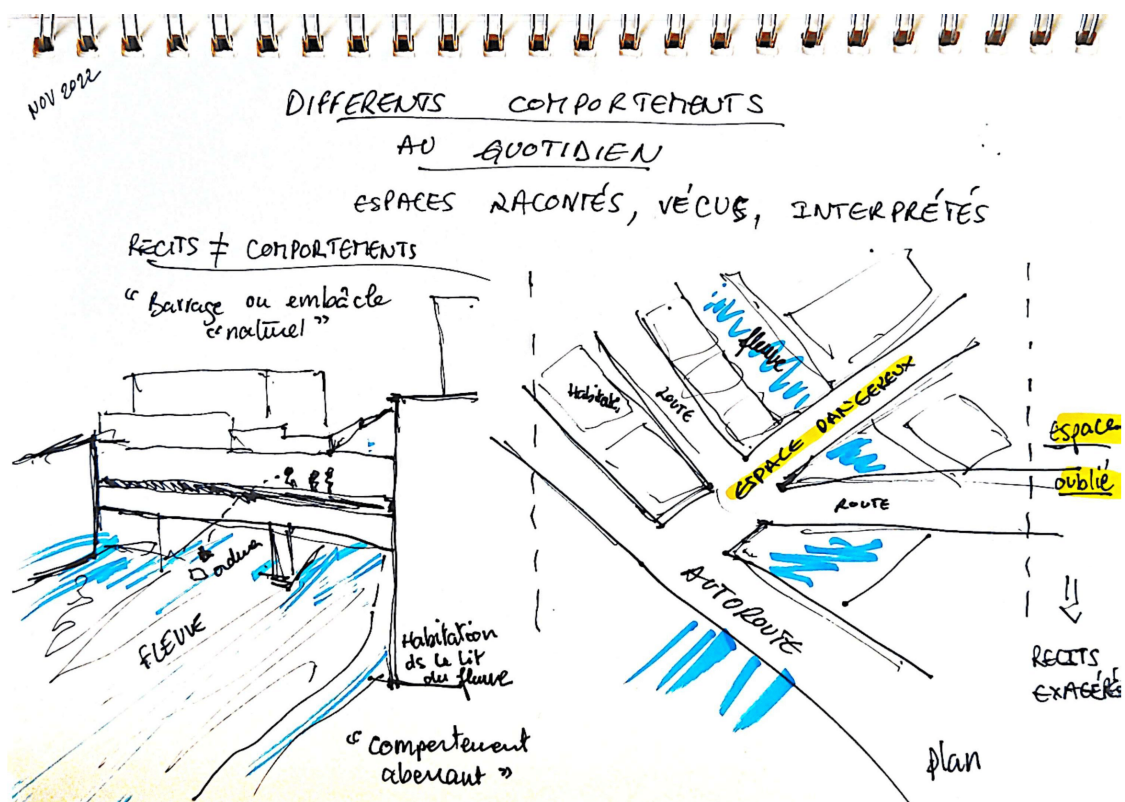 NOV 2022
DIFFERENTS COMPORTEMENTS
AU QUOTIDIEN
ESPACES RACONTÉS, VÉCUS, INTERPRÉTÉS
RECITS ≠ COMPORTEMENTS
"Barrage ou embâcle
"naturel"
FLEUVE
Habitation
ds le lit
du fleuve
"Comportement
aberrant"
fleuve
ROUTE
ESPACE DANGEREUX
ROUTE
AUTOROUTE
plan
espace
oublié
RECITS
EXAGÉRÉS